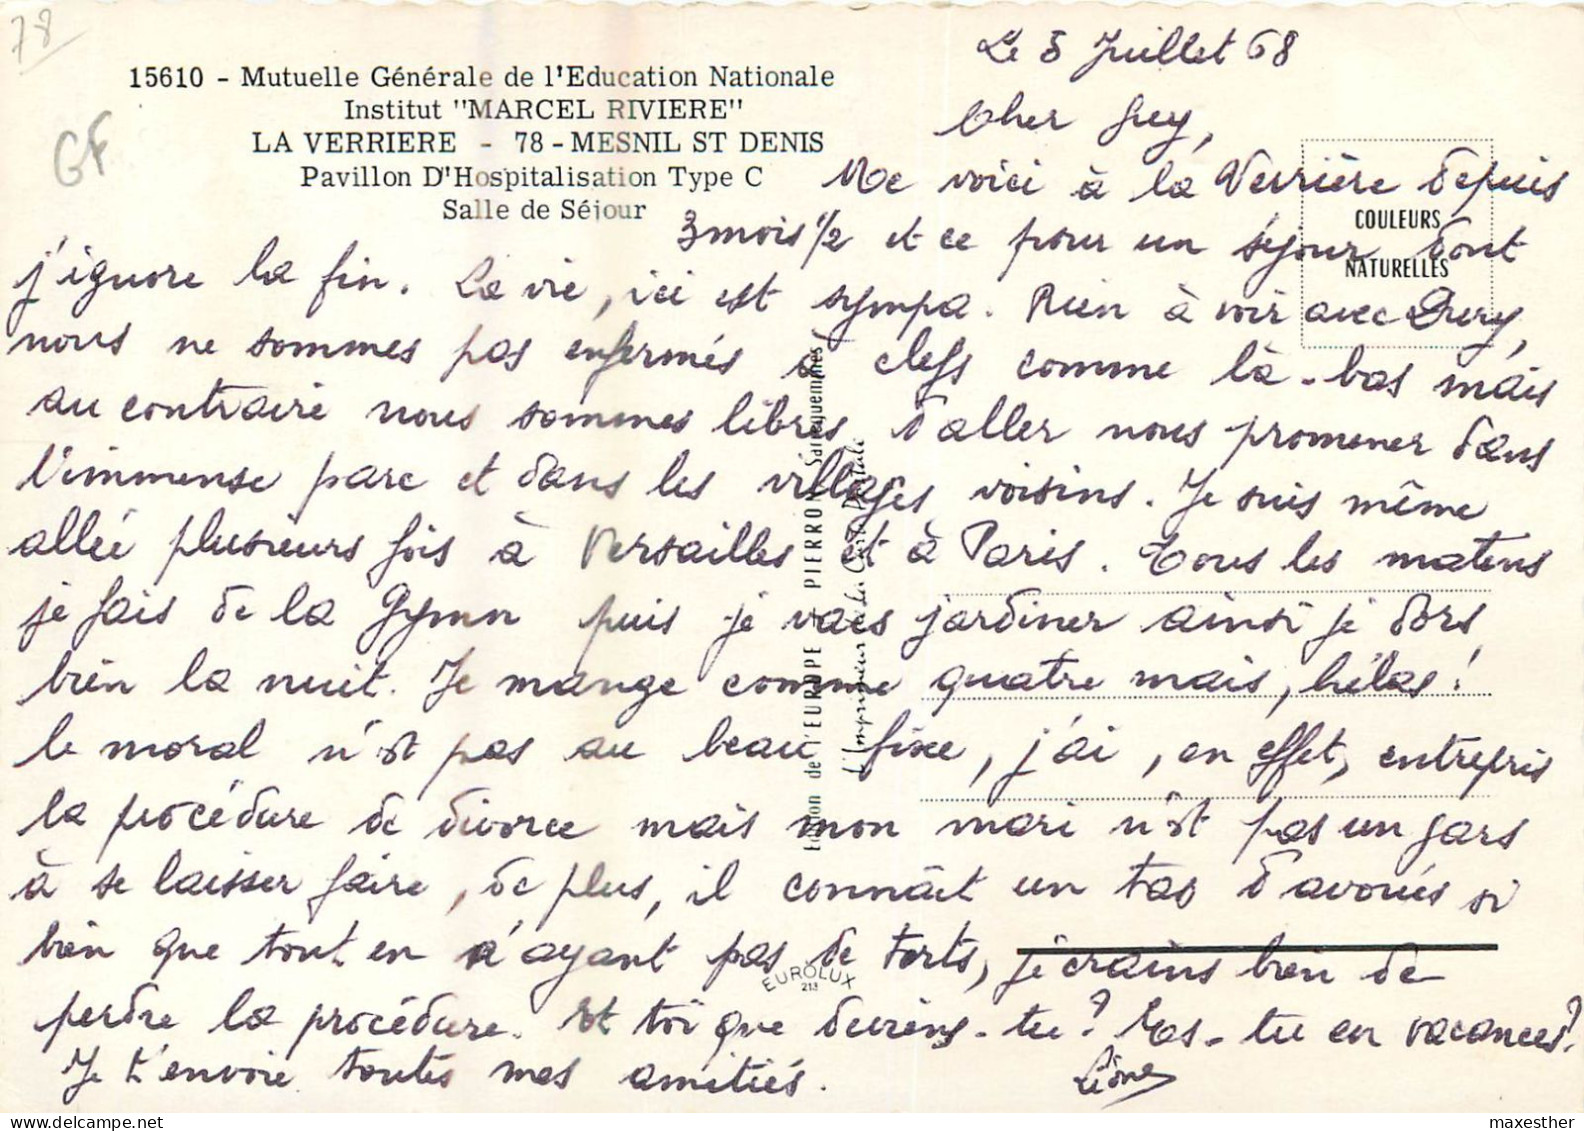 78
15610 - Mutuelle Générale de l'Education Nationale
Institut "MARCEL RIVIERE"
LA VERRIERE - 78 - MESNIL ST DENIS
Pavillon D'Hospitalisation Type C
Salle de Séjour
GF
COULEURS
NATURELLES
Le 5 Juillet 68
Cher Guy,
Me voici à la Verrière depuis
3 mois 1/2 et ce pour un séjour dont
j'ignore la fin. La vie, ici est sympa. Rien à voir avec
nous ne sommes pas enfermés à clefs comme là-bas mais
au contraire nous sommes libres d'aller nous promener dans
l'immense parc et dans les villages voisins. Je suis même
allée plusieurs fois à Versailles et à Paris. Tous les matins
je fais de la Gymn puis je vais jardiner ainsi je dors
bien la nuit. Je mange comme quatre mais, hélas!
le moral n'est pas au beau fixe, j'ai, en effet, entrepris
la procédure de divorce mais mon mari n'est pas un gars
à se laisser faire, de plus, il connaît un tas d'avoués si
bien que tout en n'ayant pas de torts, je crains bien de
perdre la procédure. Et toi que deviens-tu? Es-tu en vacances?
Je t'envoie toutes mes amitiés.
Edition de l'EUROPE - PIERRON Sarreguemines
L'Imprimeur de la Carte Postale
EUROLUX
213
maxesther